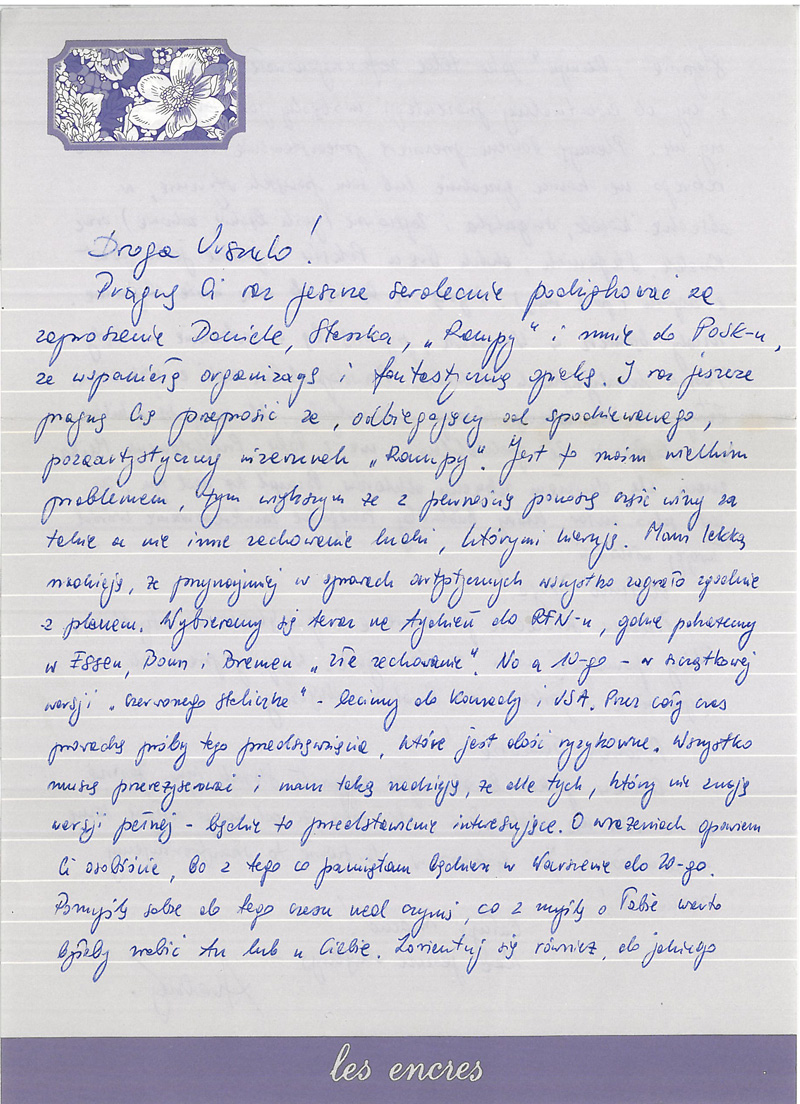 Droga Urszulo!
Pragnę Ci raz jeszcze serdecznie podziękować za
zaproszenie Daniela, Staszka, „Rampy" i mnie do POSK-u,
za wspaniałą organizację i fantastyczną opiekę. I raz jeszcze
pragnę Cię przeprosić za, odbiegający od spodziewanego,
pozaartystyczny wizerunek „Rampy". Jest to moim wielkim
problemem, tym większym że z pewnością ponoszę część winy za
takie a nie inne zachowanie ludzi, którymi kieruję. Mam lekką
nadzieję, że przynajmniej w sprawach artystycznych wszystko zagrało zgodnie
z planem. Wybieramy się teraz na tydzień do RFN-u, gdzie pokażemy
w Essen, Bonn i Bremen „Złe zachowanie". No a 10-go - w szczątkowej
wersji „Czerwonego stoliczka" - lecimy do Kanady i USA. Przez cały czas
prowadzę próby tego przedsięwzięcia, które jest dość ryzykowne. Wszystko
muszę przereżyserować i mam taką nadzieję, że dla tych, którzy nie znają
wersji pełnej - będzie to przedstawienie interesujące. O wrażeniach opowiem
Ci osobiście, bo z tego co pamiętam będziesz w Warszawie do 20-go.
Pomyślę sobie do tego czasu nad czymś, co z myślą o Tobie warto
byłoby zrobić tu lub u Ciebie. Zorientuj się również, do jakiego
les encres